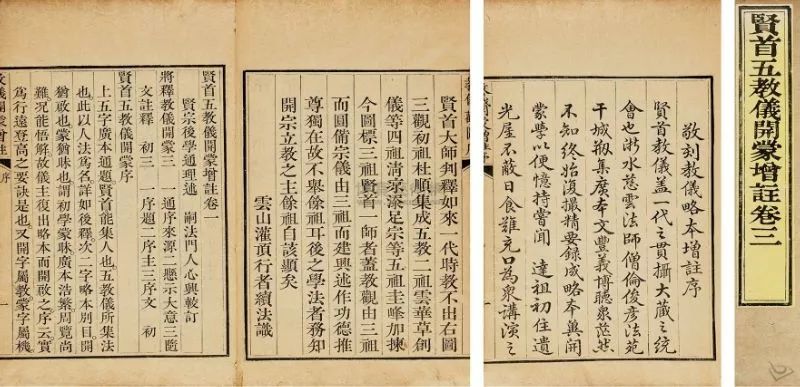 賢首五教儀開蒙增註卷三
敬刻教儀略本增註序
賢首教儀蓋一代之貫攝大藏之統
會也浙水慈雲法師僧倫俊彥法苑
干城瓶集廣本文豐義博聽衆茫然
不知終始復撮精要錄成略本冀開
蒙學以便憶持嘗聞　達祖初住遺
光屋不蔽日食難充口為衆講演之
賢首大師判釋如來一代時教不出右圖
三觀初祖杜順集成五教二祖雲華草創
儀等四祖清涼深足宗等五祖圭峰加揀
今圖標三祖賢首一師者蓋教觀由三祖
而圓備宗儀由三祖而建興逃作功德推
尊獨在故不舉餘祖耳後之學法者務知
開宗立教之主餘祖自該顯矣
雲山灌頂行者續法識
賢首五教儀開蒙增註卷一
賢宗後學通理述　嗣法門人心興較訂
將釋教儀開蒙三　一通序來源二懸示大意三隨
文註釋　初三　一序題二序主三序文　初
賢首五教儀開蒙序
上五字廣本通題賢首能集人也五教儀所集法
也此以人法為名詳如後釋次二字略本別目開
猶敢也蒙猶昧也謂初學蒙昧廣本浩繁周覽尚
難況能悟解故儀主復出略本而開啟之序云實
為行遠登高之要訣是也又開字屬教蒙字屬機
教儀開蒙增註
序
一